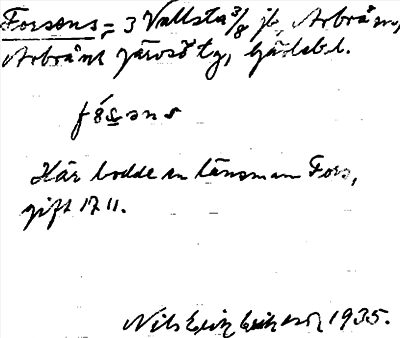 Forsens = 3 Vallsta 3/8 jb, Arbrå sn,
Arbrå ns järvsö tg, Gävlebl.
fósens
Här bodde en länsman Fors,
gift 1711.
Nils Erik Eriksson 1935.